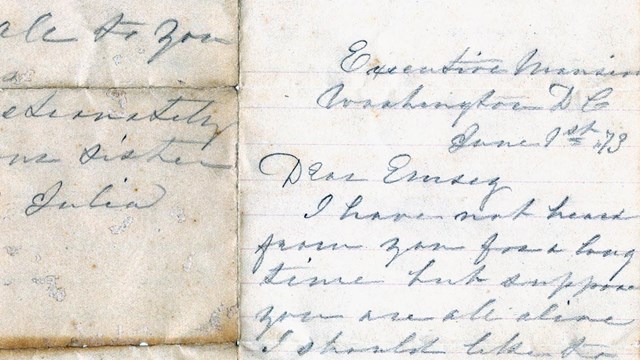 ale to you
etionately
sister
Julia
Executive Mansion
Washington D C
June 1st 73
Dear Emsey
I have not heard
from you for a long
time but suppose
you are all alive
I should like to